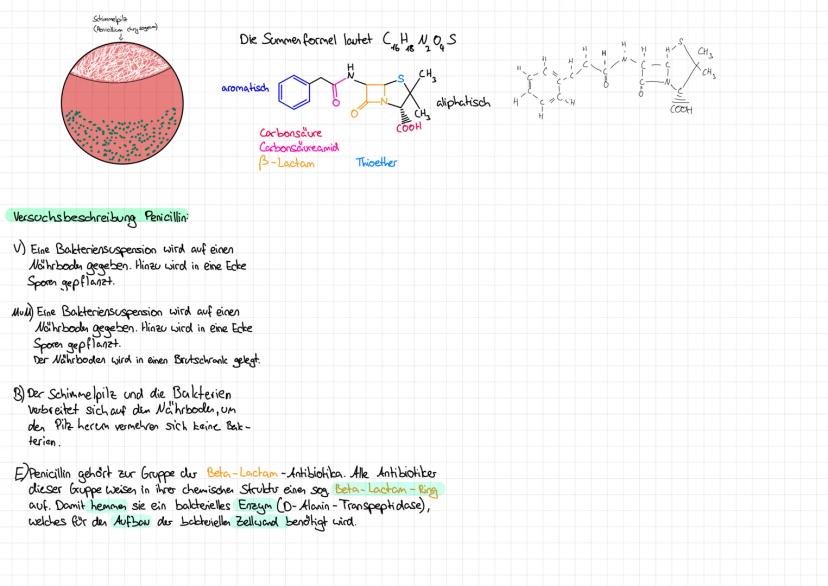 Schimmelpilz
(Penicillium chrysogenum)
Die Summenformel lautet C16H18N2O4S
aromatisch
H
N
S
CH3
CH3
O
O
N
COOH
aliphatisch
Carbonsäure
Carbonsäureamid
β-Lactam
Thioether
H
H
H
H
H
H
H
H
H
C
C
N
C
C
S
CH3
CH3
O
C
N
O
C
COOH
Versuchsbeschreibung Penicillin:
V) Eine Bakteriensuspension wird auf einen
Nährboden gegeben. Hinzu wird in eine Ecke
Sporen gepflanzt.
MuM) Eine Bakteriensuspension wird auf einen
Nährboden gegeben. Hinzu wird in eine Ecke
Sporen gepflanzt.
Der Nährboden wird in einen Brutschrank gelegt.
B) Der Schimmelpilz und die Bakterien
verbreitet sich auf den Nährboden, um
den Pilz herum vermehren sich keine Bak-
terien.
E) Penicillin gehört zur Gruppe der Beta-Lactam-Antibiotika. Alle Antibiotika
dieser Gruppe weisen in ihrer chemischen Struktur einen sog. Beta-Lactam-Ring
auf. Damit hemmen sie ein bakterielles Enzym (D-Alanin-Transpeptidase),
welches für den Aufbau der bakteriellen Zellwand benötigt wird.